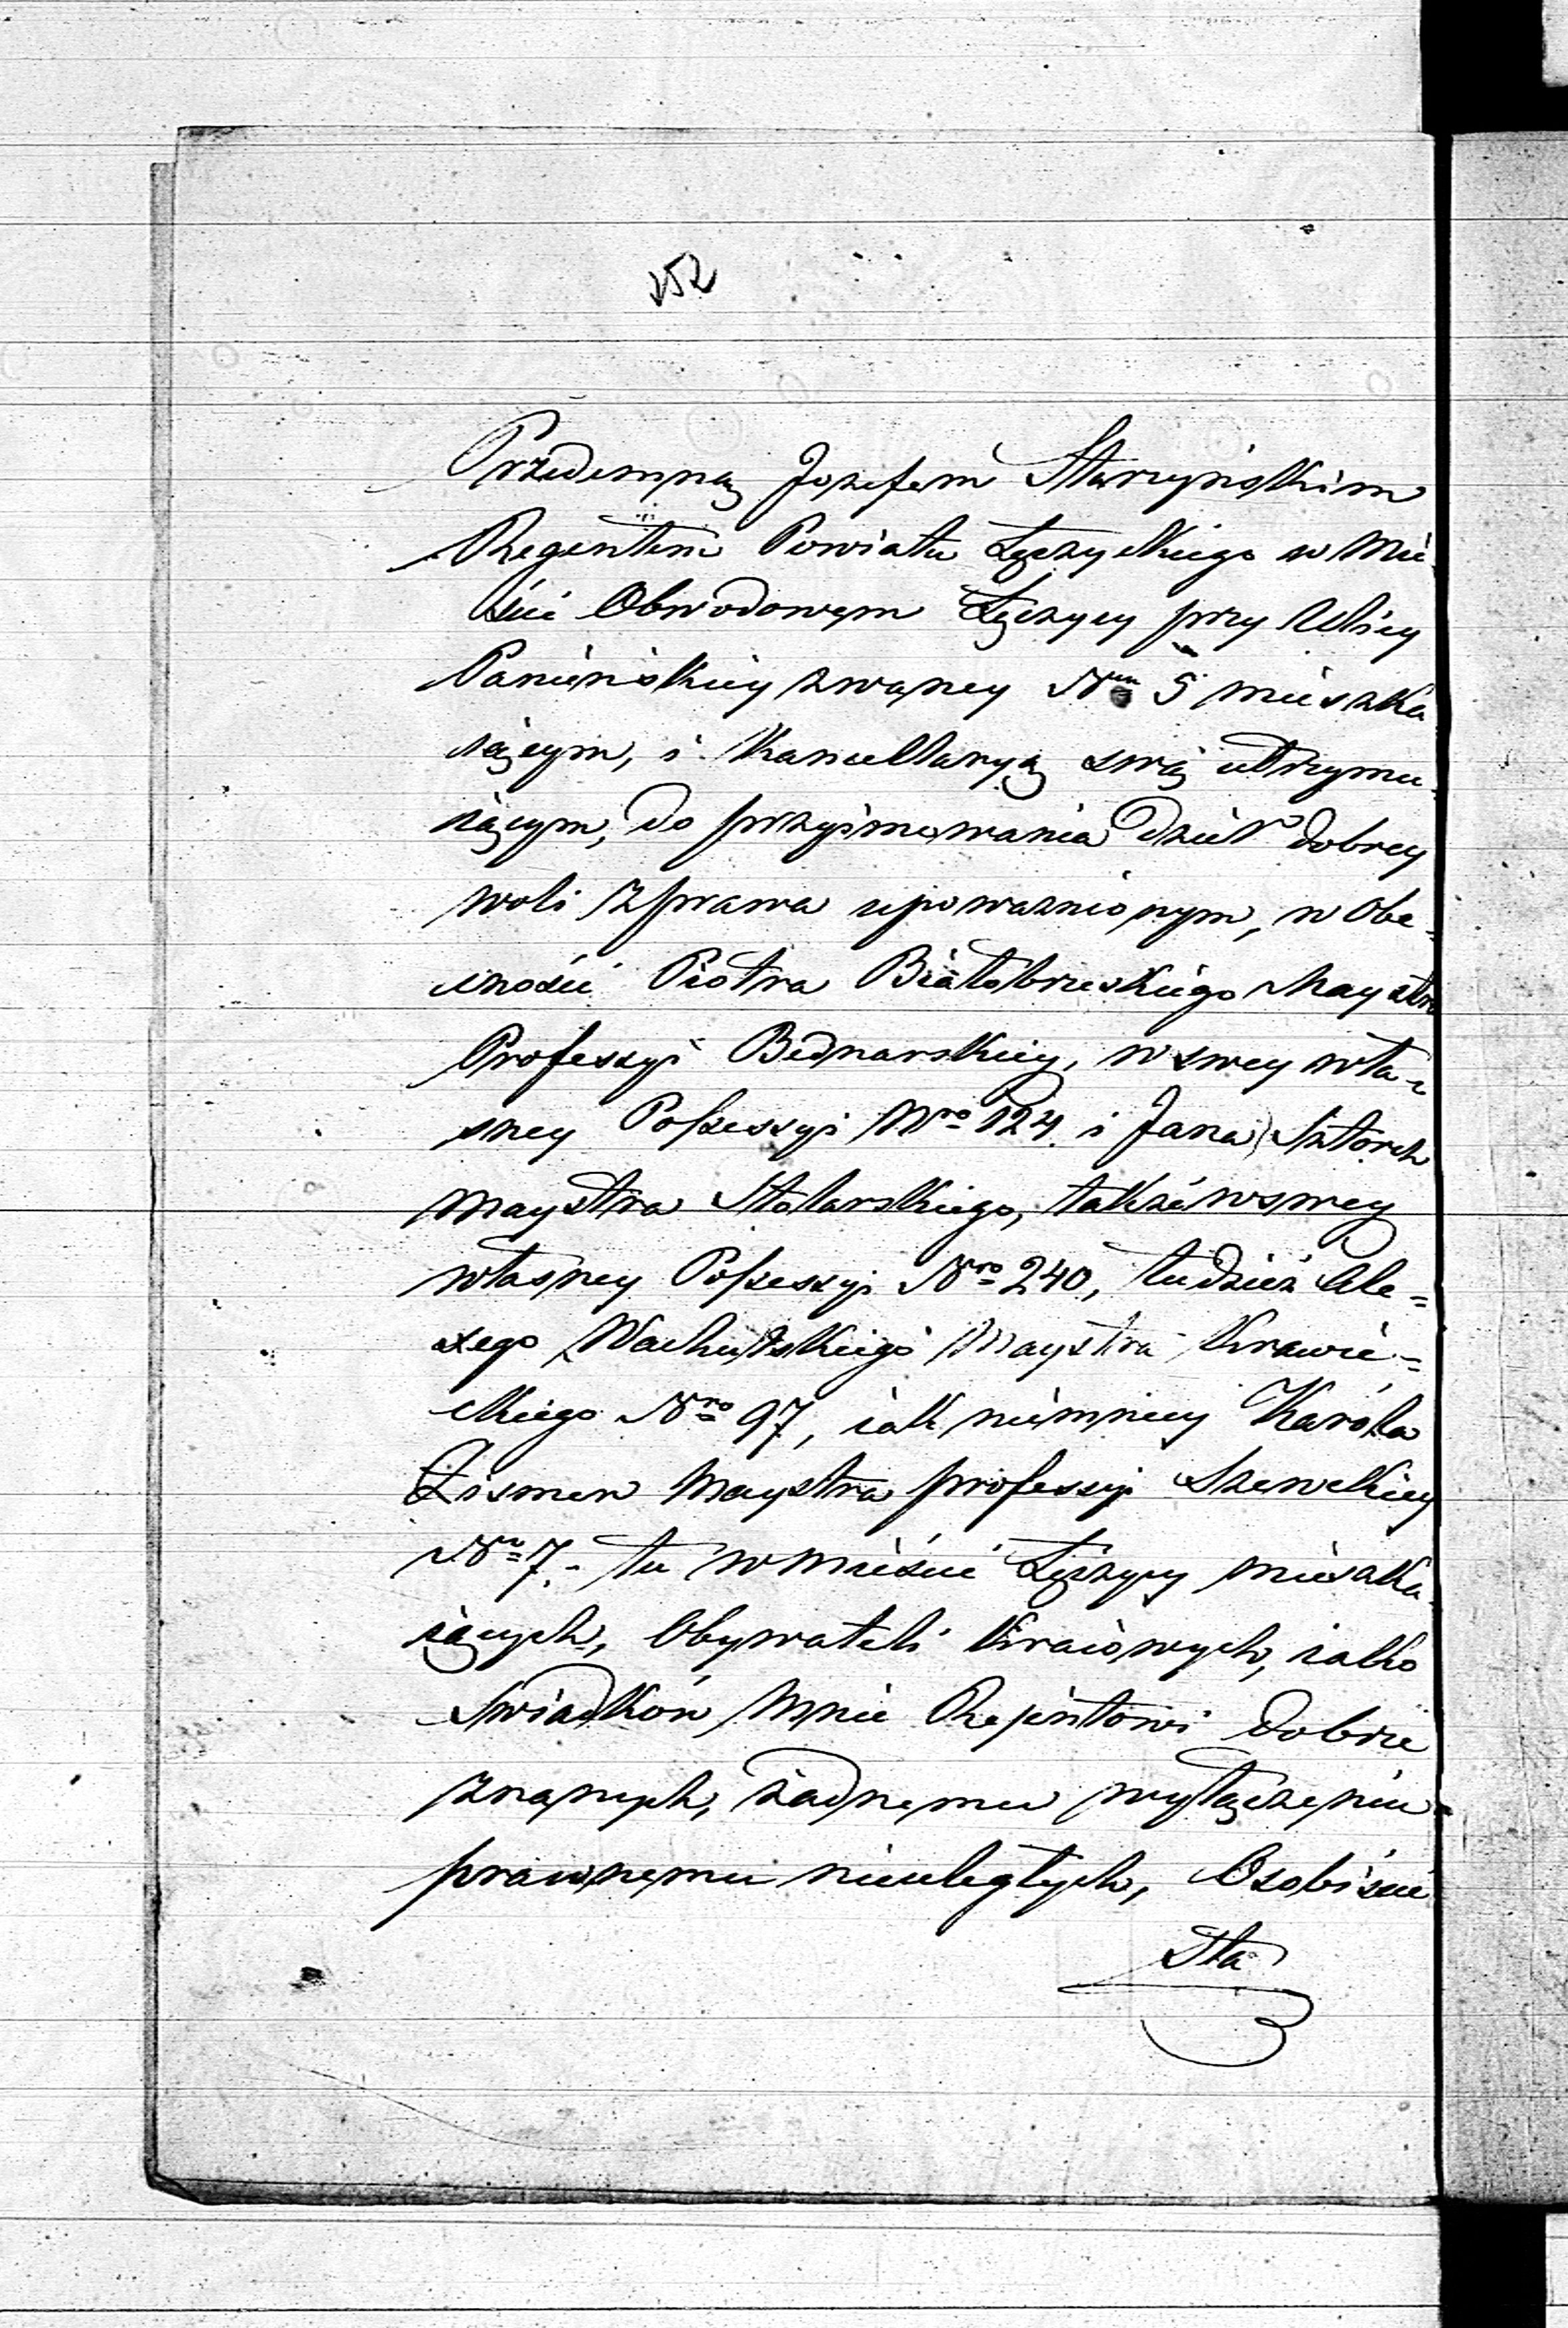 252
Przedemną Jozefem Starzyńskim
Regentem Powiatu Łęczyckiego w Mie-
ście Obwodowem Łęczycy przy Ulicy
Panieńskiey zwaney Nrm 5 mieszka
iącym, i Kancellaryą swą utrzymu-
iącym, do przyimowania dzieł dobrey
woli z prawa upoważnionym, w Obe-
cności Piotra Białobrzeskiego Maystra
Professyi Bednarskiey, w swey wła-
sney Possessyi Nro 124. i Jana Sztorch
Maystra Stolarskiego, także w swey
własney Possessyi Nro 240, tudzież Ale=
xego Maystra Krawie=
ckiego Nro 97, iak niemniey Karóla
Maystra professyi Szewckiey
Nro 7.- tu w Mieście Łęczycy mieszka-
iących, Obywateli Kraiowych, iako
Swiadków Mnie Rejentowi dobrze
znanych, żadnemu wyłączeniu
prawnemu nieuległych, Osobiście
Sta